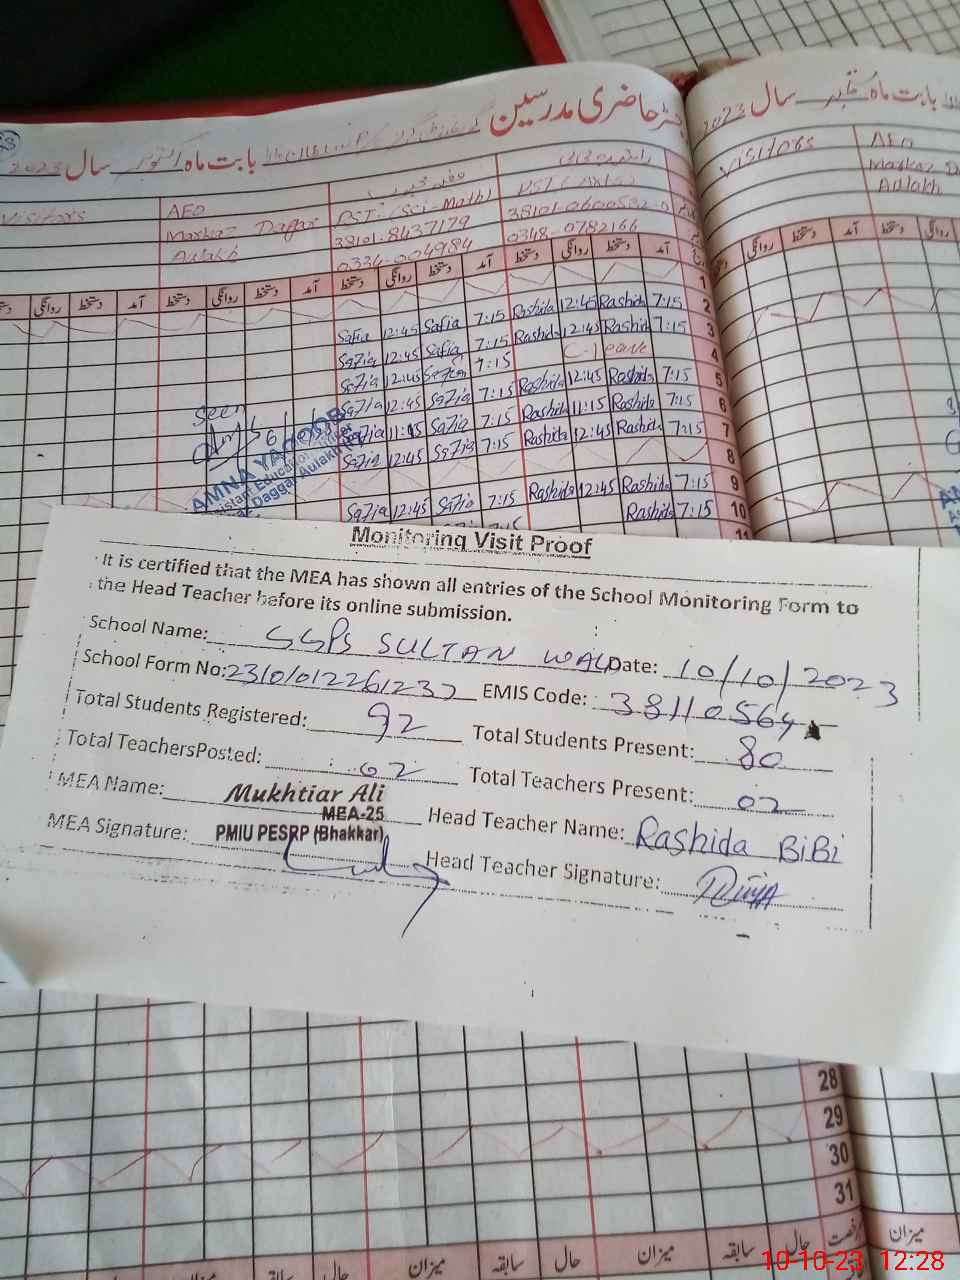 رجسٹر حاضری مدرسین
بابت ماہ اکتوبر سال 2023
بابت ماہ اکتوبر سال 2023
Visitors
AEO
Markaz Daggar
Aulakh
PST. (Sci-Math)
38101-8437179
0334-004984
PST (Arts)
0348-0782166
Visitors
AEO
Aulakh
دستخط روانگی دستخط آمد دستخط روانگی دستخط آمد دستخط روانگی دستخط آمد
1
Safia 12:45 Safia 7:15 Rashida 12:45 Rashida 7:15 2
Safia 12:45 Safia 7:15 Rashida 12:45 Rashida 7:15 3
Safia 12:45 Safia 7:15 C-leave 4
Safia 12:45 Safia 7:15 Rashida 12:45 Rashida 7:15 5
Safia 11:15 Safia 7:15 Rashida 11:15 Rashida 7:15 6
Safia 12:45 Safia 7:15 Rashida 12:45 Rashida 7:15 7
8
Safia 12:45 Safia 7:15 Rashida 12:45 Rashida 7:15 9
Rashida 7:15 10
11
Seen
AMNA YAQOOB
Education Officer
Daggar Aulakh
Monitoring Visit Proof
It is certified that the MEA has shown all entries of the School Monitoring Form to
the Head Teacher before its online submission.
School Name: GGPS SULTAN WALA Date: 10/10/2023
School Form No: EMIS Code: 38110564
Total Students Registered: 92 Total Students Present: 80
Total TeachersPosted: 02 Total Teachers Present: 02
MEA Name: Mukhtiar Ali
MEA-25
PMIU PESRP (Bhakkar)
Head Teacher Name: Rashida BiBi
MEA Signature: Head Teacher Signature:
28
29
30
31
میزان سابقہ حال میزان سابقہ حال میزان
10-10-23 12:28